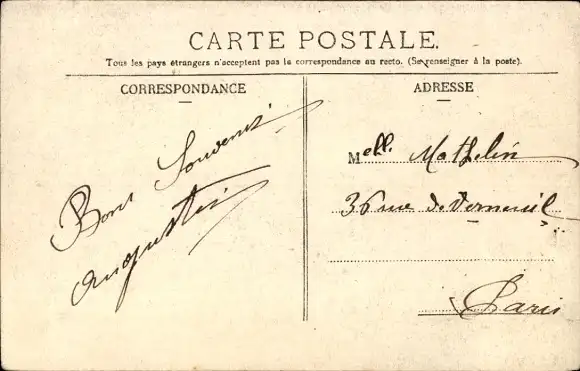 CARTE POSTALE.
Tous les pays étrangers n'acceptent pas la correspondance au recto. (Se renseigner à la poste).
CORRESPONDANCE
Bons Souvenirs
Augustin
ADRESSE
Melle. Mathelin
36 rue de Verneuil
Paris